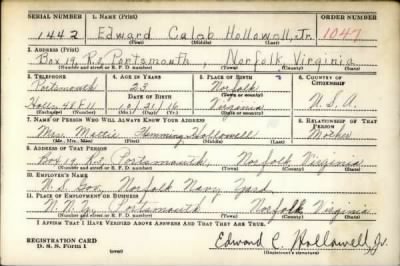 SERIAL NUMBER 1. NAME (Print) ORDER NUMBER
1442 Edward Caleb Hollowell, Jr. 1047
(First) (Middle) (Last)
2. ADDRESS (Print)
Box 19, R.3, Portsmouth, Norfolk Virginia
(Number and street or R. F. D. number) (Town) (County) (State)
3. TELEPHONE 4. AGE IN YEARS 5. PLACE OF BIRTH 6. COUNTRY OF CITIZENSHIP
Portsmouth 23 Norfolk
DATE OF BIRTH (Town or county)
10/21/16 Virginia U.S.A.
(Exchange) (No.) (Mo.) (Day) (Yr.) (State or country)
7. NAME OF PERSON WHO WILL ALWAYS KNOW YOUR ADDRESS 8. RELATIONSHIP OF THAT PERSON
Mrs. Mattie Flemming Hollowell Mother
(Mr., Mrs., Miss) (First) (Middle) (Last)
9. ADDRESS OF THAT PERSON
Box 19, R.3, Portsmouth, Norfolk, Virginia
(Number and street or R. F. D. number) (Town) (County) (State)
10. EMPLOYER'S NAME
U.S. Gov. Norfolk Navy Yard
11. PLACE OF EMPLOYMENT OR BUSINESS
Portsmouth Norfolk Virginia
(Number and street or R. F. D. number) (Town) (County) (State)
I AFFIRM THAT I HAVE VERIFIED ABOVE ANSWERS AND THAT THEY ARE TRUE.
REGISTRATION CARD
D. S. S. Form 1
Edward C. Hollowell Jr.
(Registrant's signature)